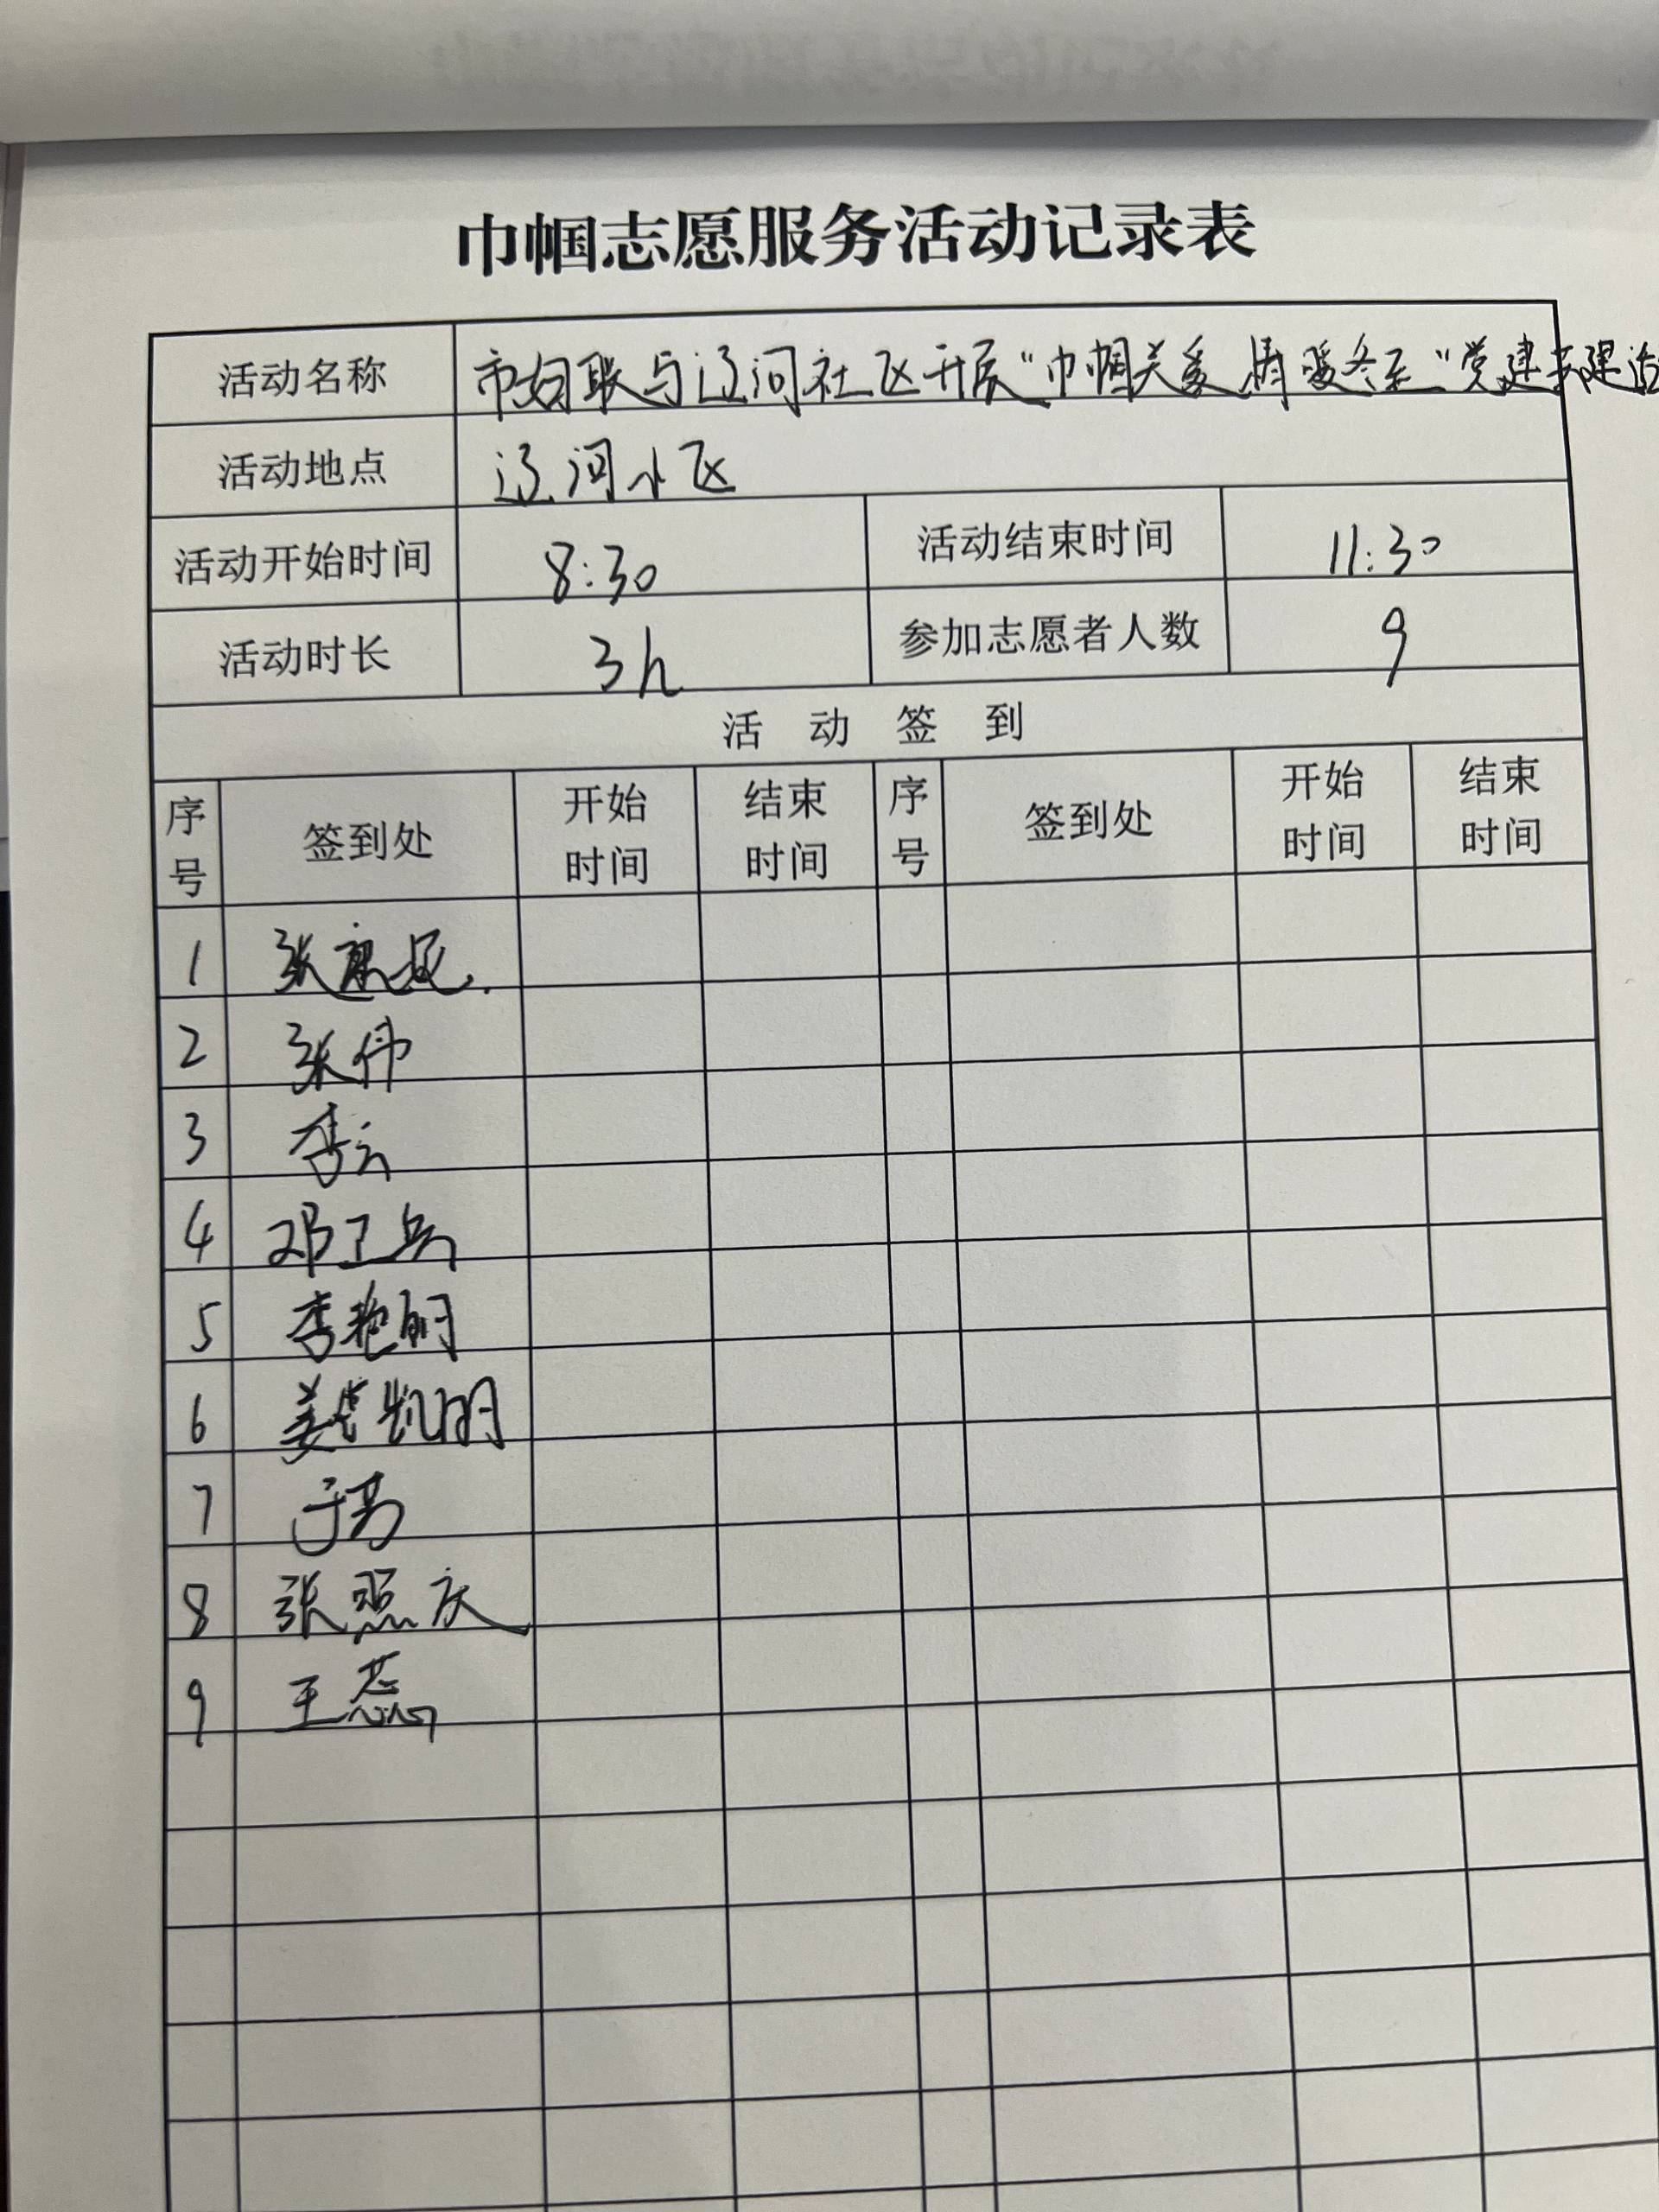 巾帼志愿服务活动记录表
活动名称 市妇联与辽河社区开展“巾帼关爱 情暖冬至”党建共建活
活动地点 辽河小区
活动开始时间 8:30 活动结束时间 11:30
活动时长 3h 参加志愿者人数 9
活动签到
序号 签到处 开始时间 结束时间 序号 签到处 开始时间 结束时间
1 张
2 张伟
3 李云
4 邓卫兵
5 李艳明
6 姜 凯明
7 于
8 张照庆
9 王蕊